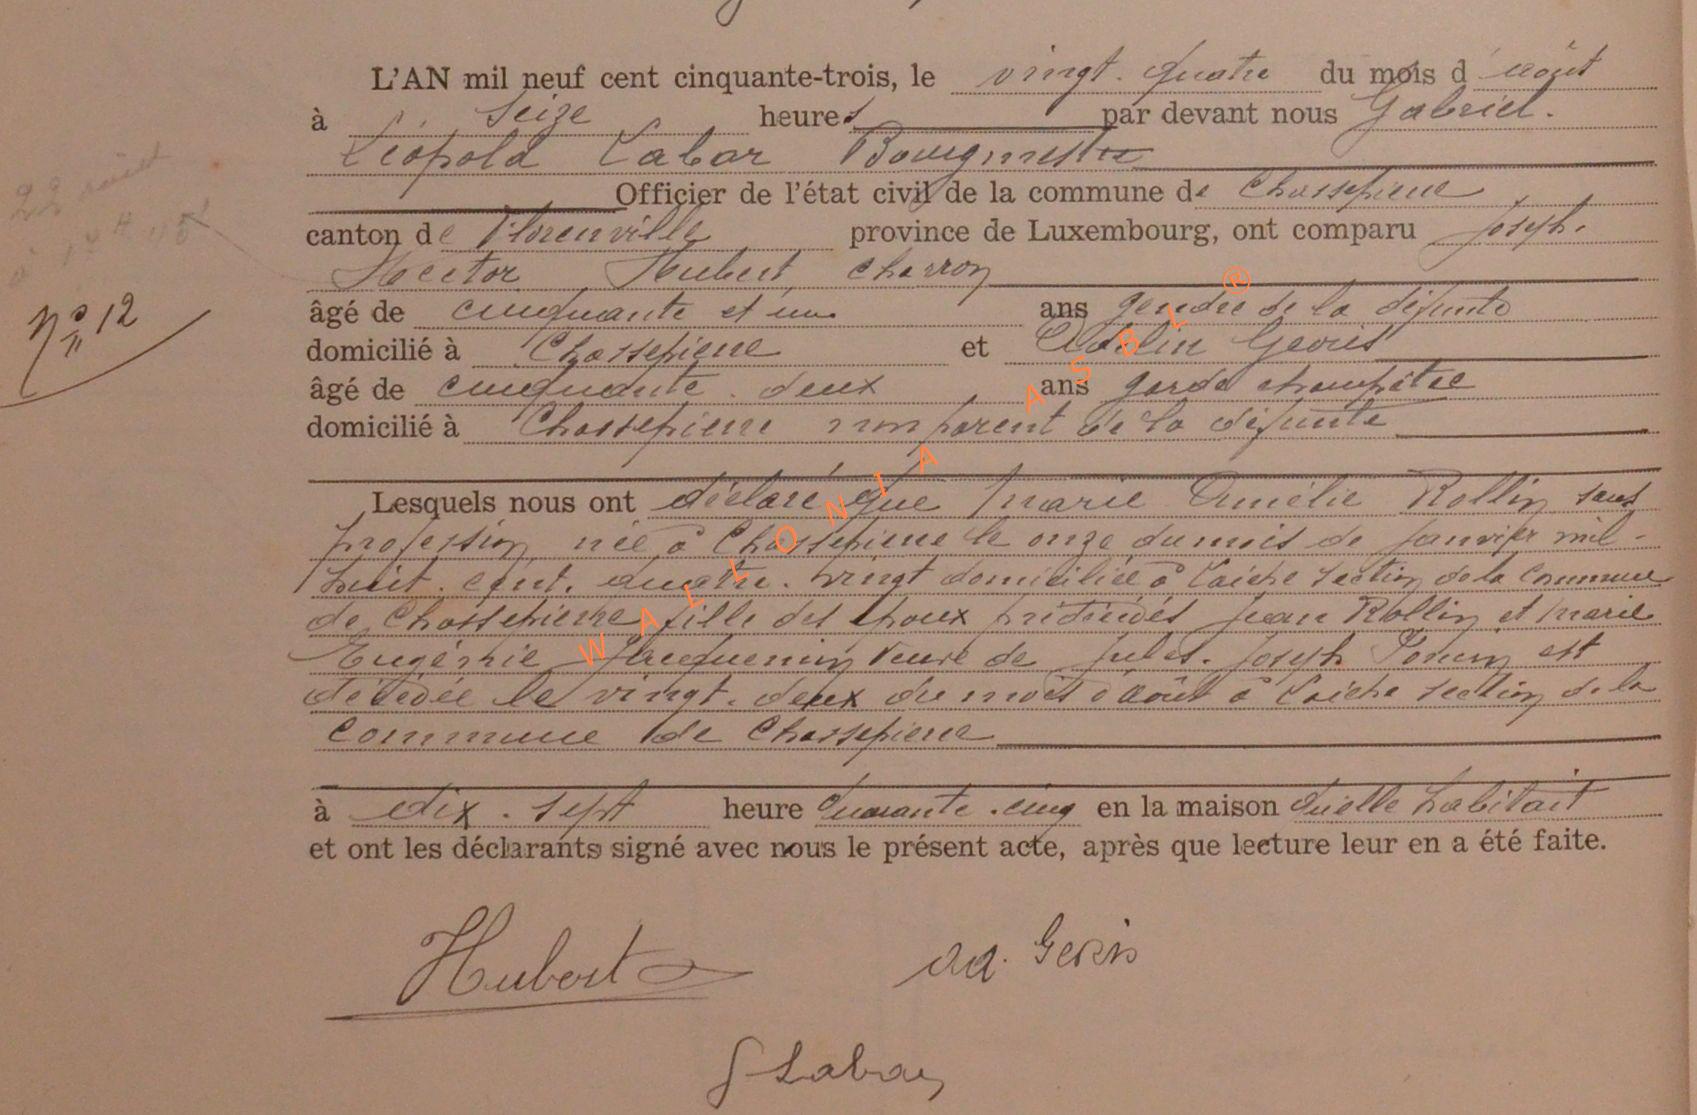 L'AN mil neuf cent cinquante-trois, le vingt-quatre du mois d'août
à seize heures par devant nous Gabriel-
Léopold Labar Bourgmestre
Officier de l'état civil de la commune de Chassepierre
canton de Florenville province de Luxembourg, ont comparu Joseph-
Hector Hubert, charron
22 août
à 17 H 45
Nº 12
âgé de cinquante et un ans gendre de la défunte
domicilié à Chassepierre et Adelin Georis
âgé de cinquante-deux ans garde champêtre
domicilié à Chassepierre non parent de la défunte
Lesquels nous ont déclaré que Marie Amélie Rollin sans
profession, née à Chassepierre le onze du mois de janvier mil-
huit-cent-quatre-vingt domiciliée à Laiche section de la commune
de Chassepierre, fille des époux prédécédés Jean Rollin et Marie
Eugénie Jacquemin veuve de Jules-Joseph est
décédée le vingt-deux du mois d'août à Laiche section de la
commune de Chassepierre
à dix-sept heure quarante-cinq en la maison qu'elle habitait
et ont les déclarants signé avec nous le présent acte, après que lecture leur en a été faite.
Hubert ad. Georis
G Labar
WALLONIA ASBL ®